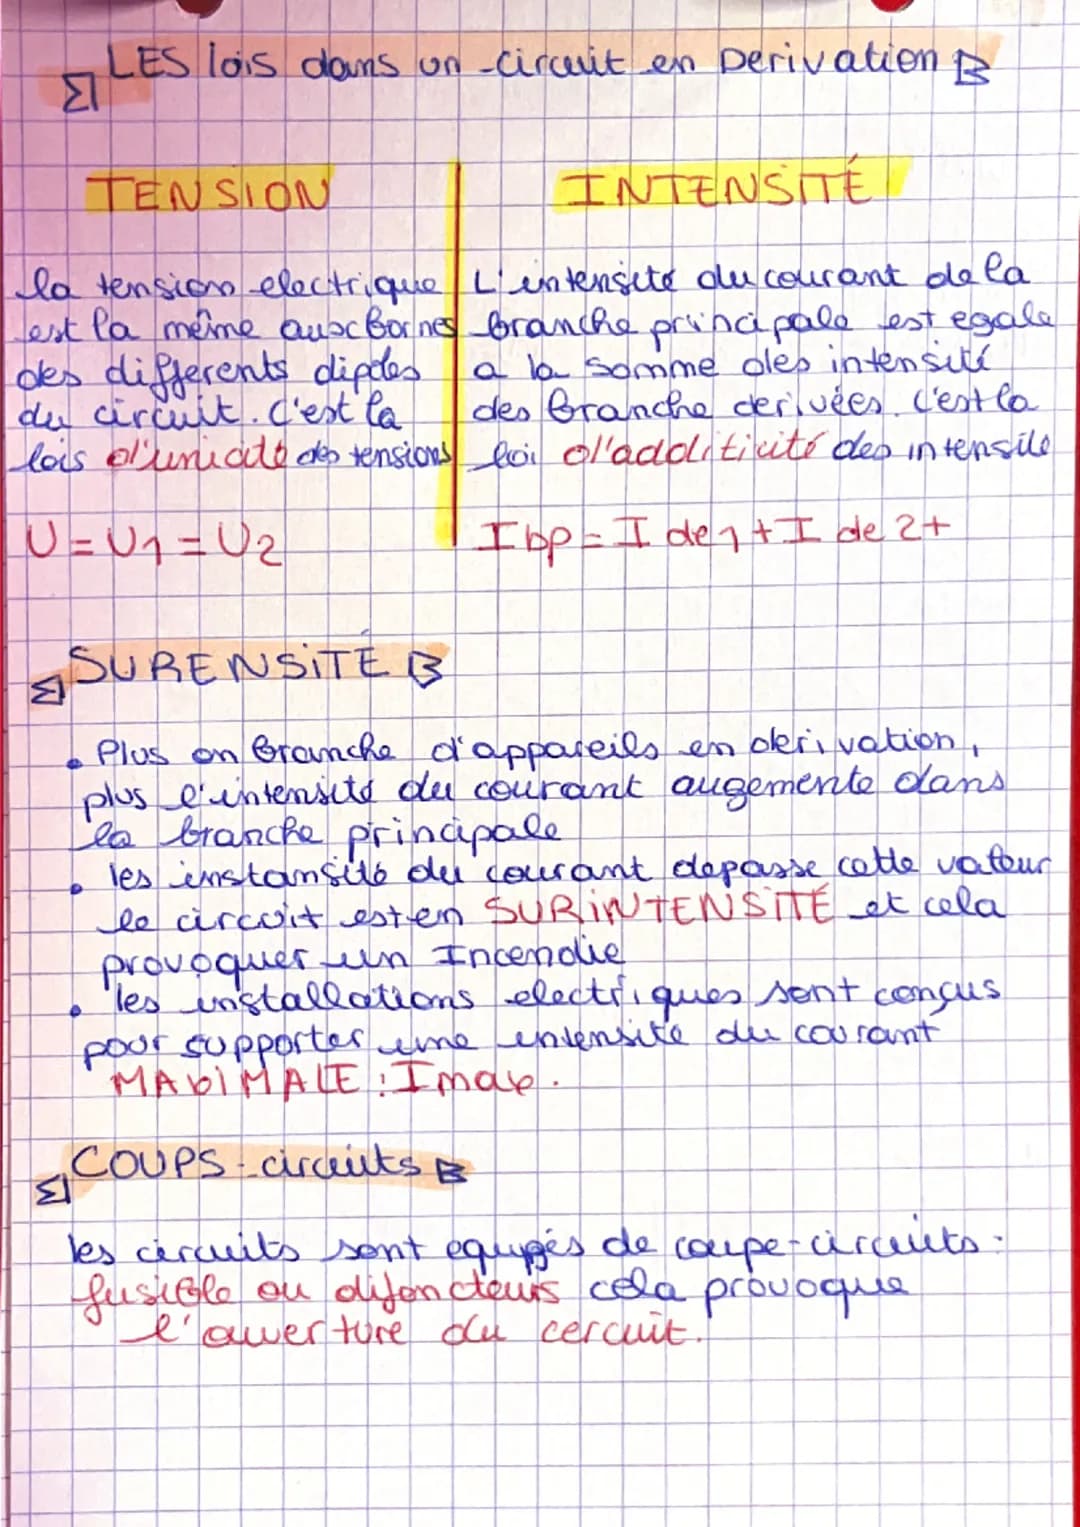 LES lois dans un circuit en Derivation
TENSION
la tension electrique
est la même aux bornes
des differents dipoles
du circuit. C'est la
lois d'unicité des tensions
U = U1 = U2
INTENSITÉ
L'intensité du courant de la
branche principale est egale
a la somme des intensité
des branche derivées. C'est la
loi d'additicité des intensité
Ibp = I de 1 + I de 2 +
SURENSITÉ
• Plus on branche d'appareils en derivation,
plus l'intensité du courant augemente dans
la branche principale
• les instansité du courant depasse cette valeur
le circuit est en SURINTENSITÉ et cela
provoquer un Incendie
• les installations electriques sont conçus
pour supporter une intensité du courant
MAXIMALE : Imax.
COUPS-circuits
les circuits sont equipés de coupe-circuits :
fusible ou disjoncteurs cela provoque
l'ouverture du cercuit.